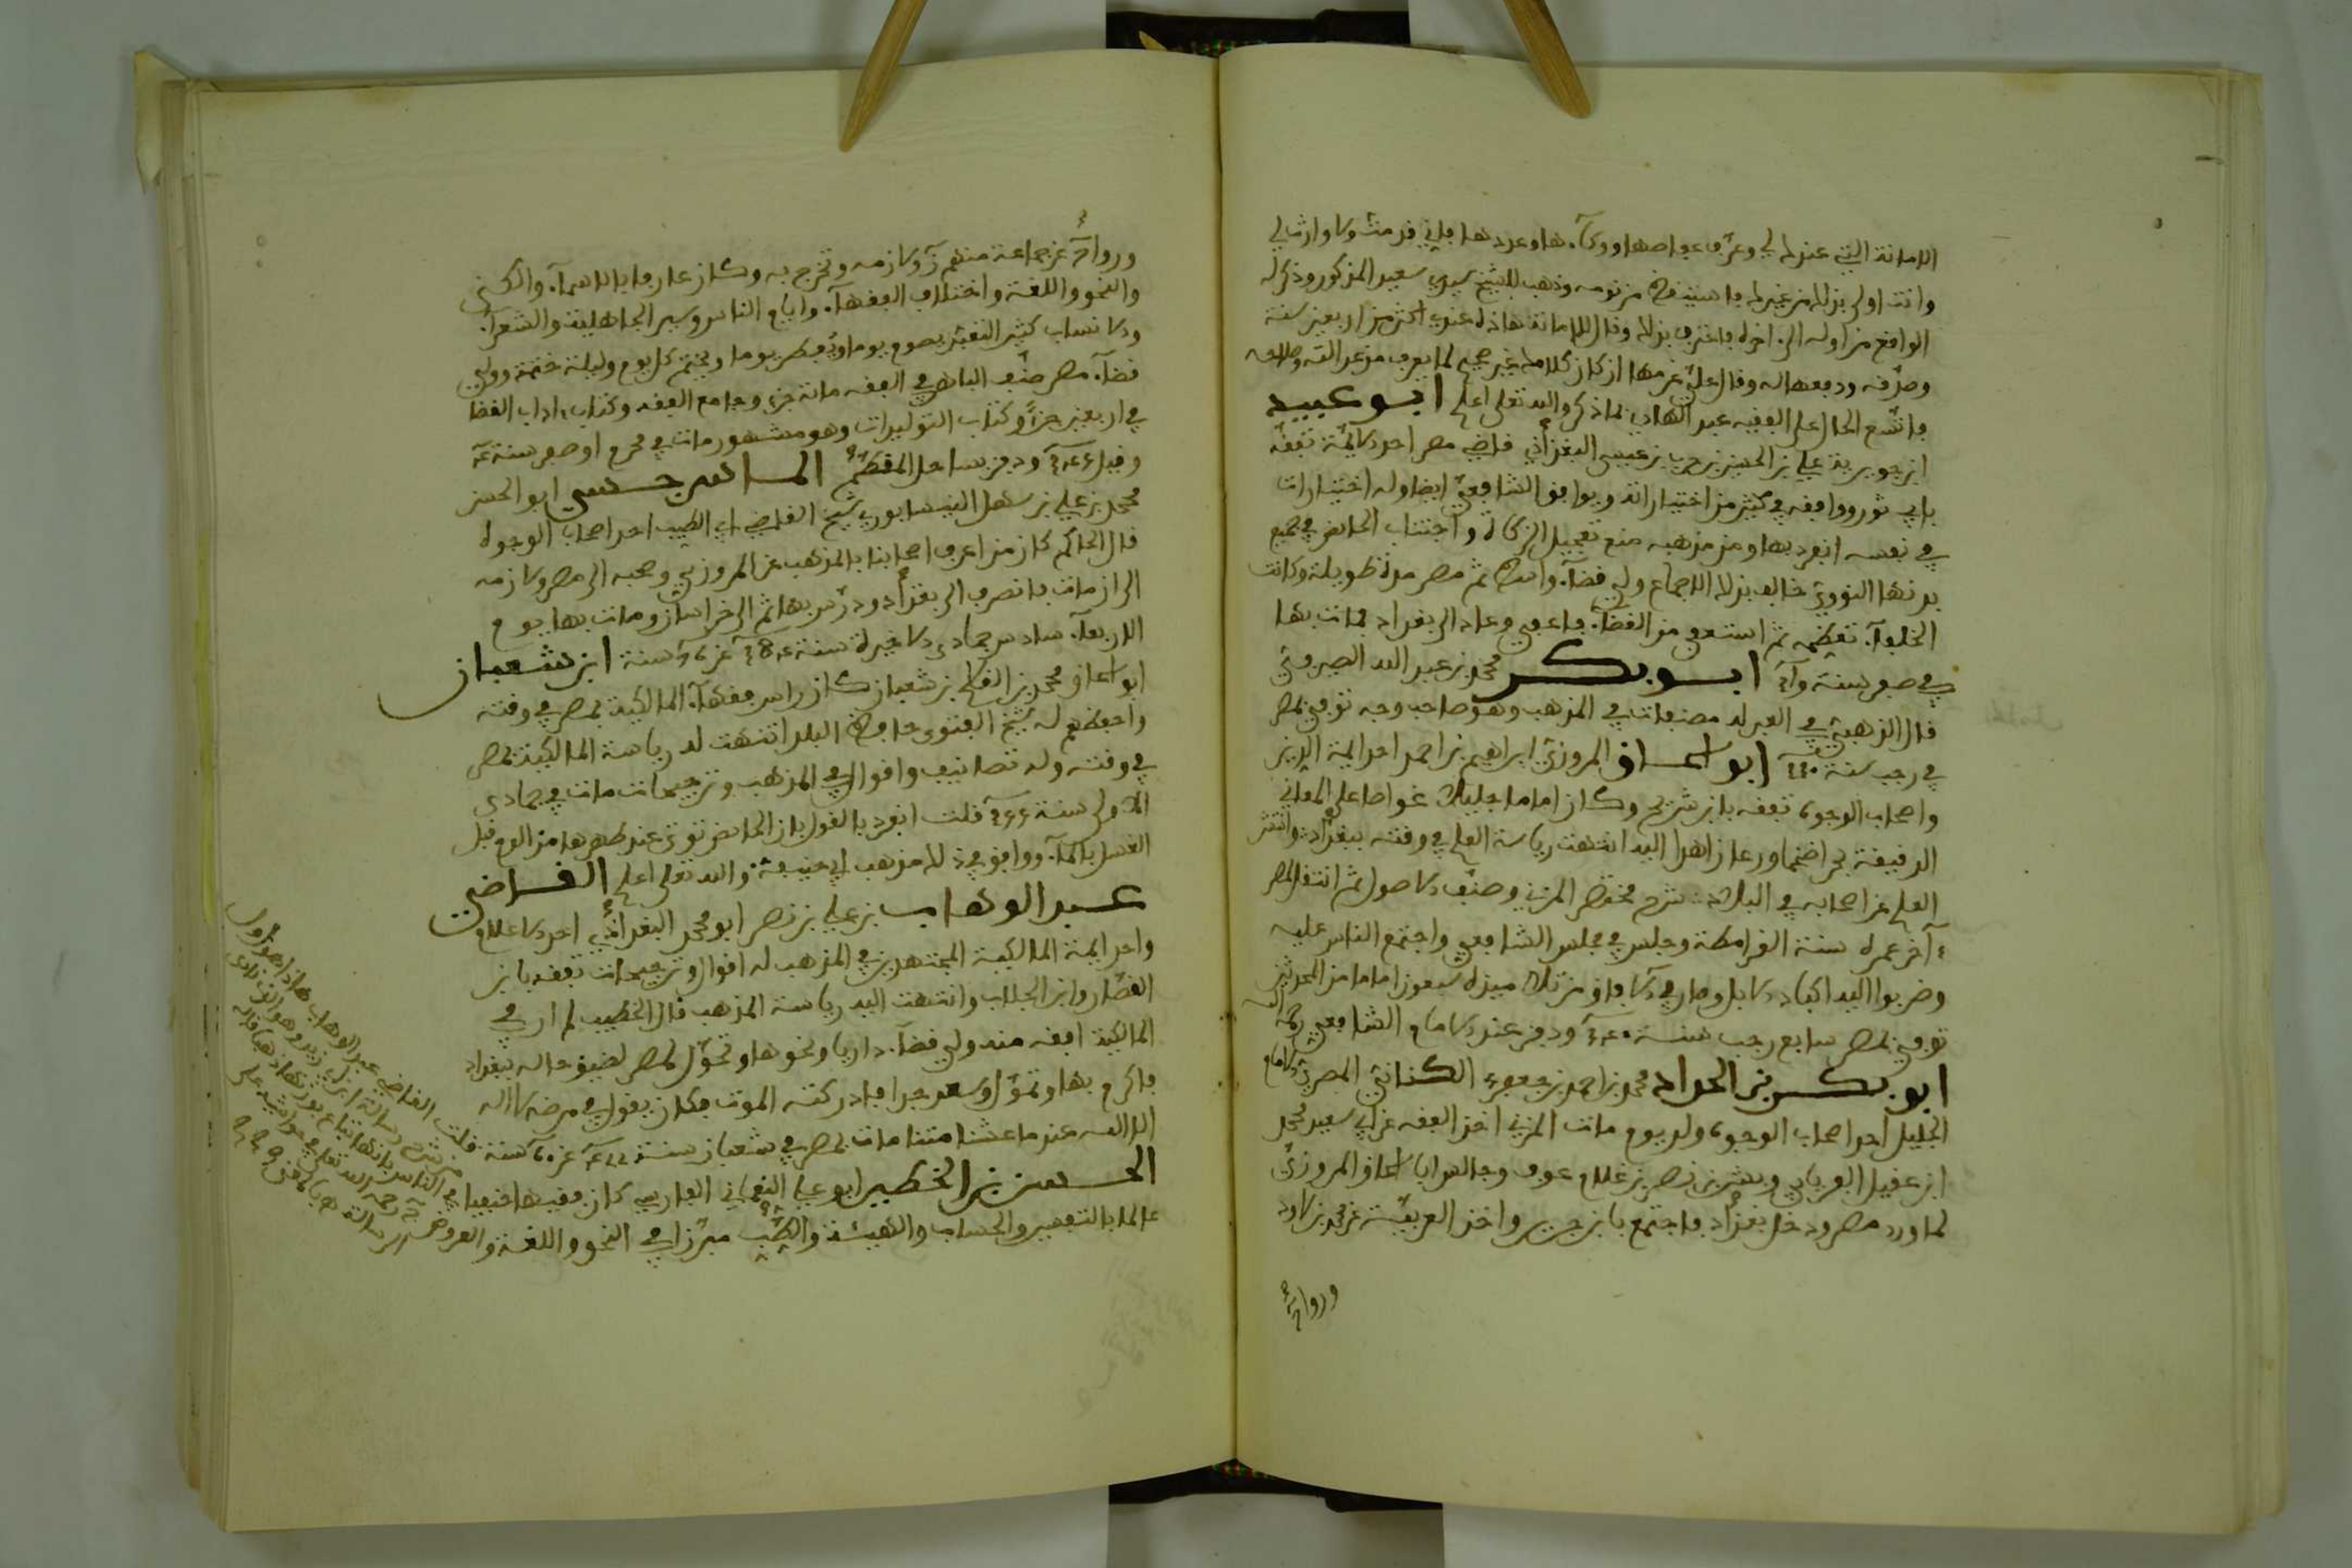 الامانة التي عندك لي وعرّف عفاصها ووكآءها وعددها فاني قد مت ولا وارث لي
وانت اولى بذلك من غيرك فاستيقظ من نومه وذهب للشيخ سيدي سعيد المذكور وذكر له
الواقع من اوله الى اخره فاعترف بذلك وقال الامانة هاذه عندي اكثر من اربعين سنة
وصدّقه ودفعها له وقال علي غرمها ان كان كلامك غير صحيح لما يعرف من عدالته وصلاحه
الحال على الفقيه عبد الهادي بما ذكر والله تعلى اعلم ابو عبيد
ابن حربويه علي بن الحسين بن حرب بن عيسى البغدادي قاضي مصر احد الايمّة تفقه
بابي ثور ووافقه في كثير من اختياراته ويوافق الشافعي ايضا وله اختيارات
في نفسه انفرد بها ومن مذهبه منع تعجيل الزكاة واجتناب الحائض في جميع
بدنها النووي خالف بذلك الاجماع ولي قضآء واسط ثم مصر مدة طويلة وكانت
الخلفآء تعظمه ثم استعفى من القضآء فاعفي وعاد الى بغداد فمات بها
في صفر سنة ابو بكر محمد بن عبد الله الصيرفي
قال الذهبي في العبر له مصنفات في المذهب وهو صاحب وجه توفي بمصر
في رجب سنة ابو اسحاق المروزي ابراهيم بن احمد احد ايمة الدين
واصحاب الوجوه تفقه بابن شريح وكان اماما جليلا غواصا على المعاني
الدقيقة بحرا ضخما ورعا زاهدا اليه انتهت رياسة العلم في وقته ببغداد وانتشر
العلم عن اصحابه في البلاد شرح مختصر المزني وصنّف الاصول ثم انتقل لمصر
ءاخر عمره سنة القرامطة وجلس في مجلس الشافعي واجتمع الناس عليه
وضربوا اليه اكباد الابل وصار في الآفاق من تلاميذه سبعون اماما من المحدثين
توفي بمصر سابع رجب سنة ودفن عند الامام الشافعي رحمه الله
ابو بكر بن الحداد محمد بن احمد بن جعفر الكناني المصري الامام
الجليل احد اصحاب الوجوه ولد يوم مات المزني اخذ الفقه عن ابي سعيد محمد
ابن عقيل الفريابي وبشر بن نصر بن غلام عرف وجالس ابا اسحاق المروزي
لما ورد مصر ودخل بغداد فاجتمع بابن جرير واخذ العربية عن محمد بن ولاد
ورواية
ورواية عن جماعة منهم ولازمه وتخرج به وكان عارفا بالاسمآء والكنى
والنحو واللغة واختلاف الفقهآء وايام الناس وسير الجاهلية والشعرآء
والانساب كثير التعبد يصوم يوما ويفطر يوما ويختم كل يوم وليلة ختمة وولي
قضآء مصر صنّف الباهر في الفقه مائة جزء وجامع الفقه وكتاب اداب القضا
في اربعين جزءا وكتاب التوليدات وهو مشهور مات في محرم او صفر سنة
وقيل ودفن بساحل المقطم الماسرجسي ابو الحسن
محمد بن علي بن سهل النيسابوري شيخ القاضي ابي الطيب احد اصحاب الوجوه
قال الحاكم كان من اعرف اصحابنا بالمذهب عن المروزي وصحبه الى مصر ولازمه
الى ان مات فانصرف الى بغداد ودرّس بها ثم الى خراسان ومات بها يوم
الاربعآء سادس جمادى الاخيرة سنة عن سنة ابن شعبان
ابو اسحاق محمد بن القاسم بن شعبان كان راس فقهآء المالكية بمصر في وقته
واحفظهم له شيخ الفتوى حافظ البلد انتهت له رياسة المالكية بمصر
في وقته وله تصانيف واقوال في المذهب وترجيحات مات في جمادى
الاولى سنة قلت انفرد بالقول بان الحائض توتى عند طهرها من الدم قبل
الغسل بالمآء ووافق في ذلك مذهب ابي حنيفة والله تعلى اعلم القاضي
عبد الوهاب بن علي بن نصر ابو محمد البغدادي احد الاعلام
واحد ايمة المالكية المجتهدين في المذهب له اقوال وترجيحات تفقه بابن
القصار وابن الجلاب وانتهت اليه رياسة المذهب قال الخطيب لم ار في
المالكية افقه منه ولي قضآء داريا ونحوها وتحوّل لمصر لضيق حاله ببغداد
فاكرم بها وتموّل وسعد جدا فادركته الموت فكان يقول في مرضه لا اله
الا الله عندما عشنا متنا مات بمصر في شعبان سنة عن سنة
الحسن بن الخطير ابو علي النعماني الفارسي كان فقيها حنفيا
عالما بالتفسير والحساب والهيئة والطب مبرّزا في النحو واللغة والعروض
قلت القاضي عبد الوهاب هاذا هو اول
من شرح رسالة ابن ابي زيد